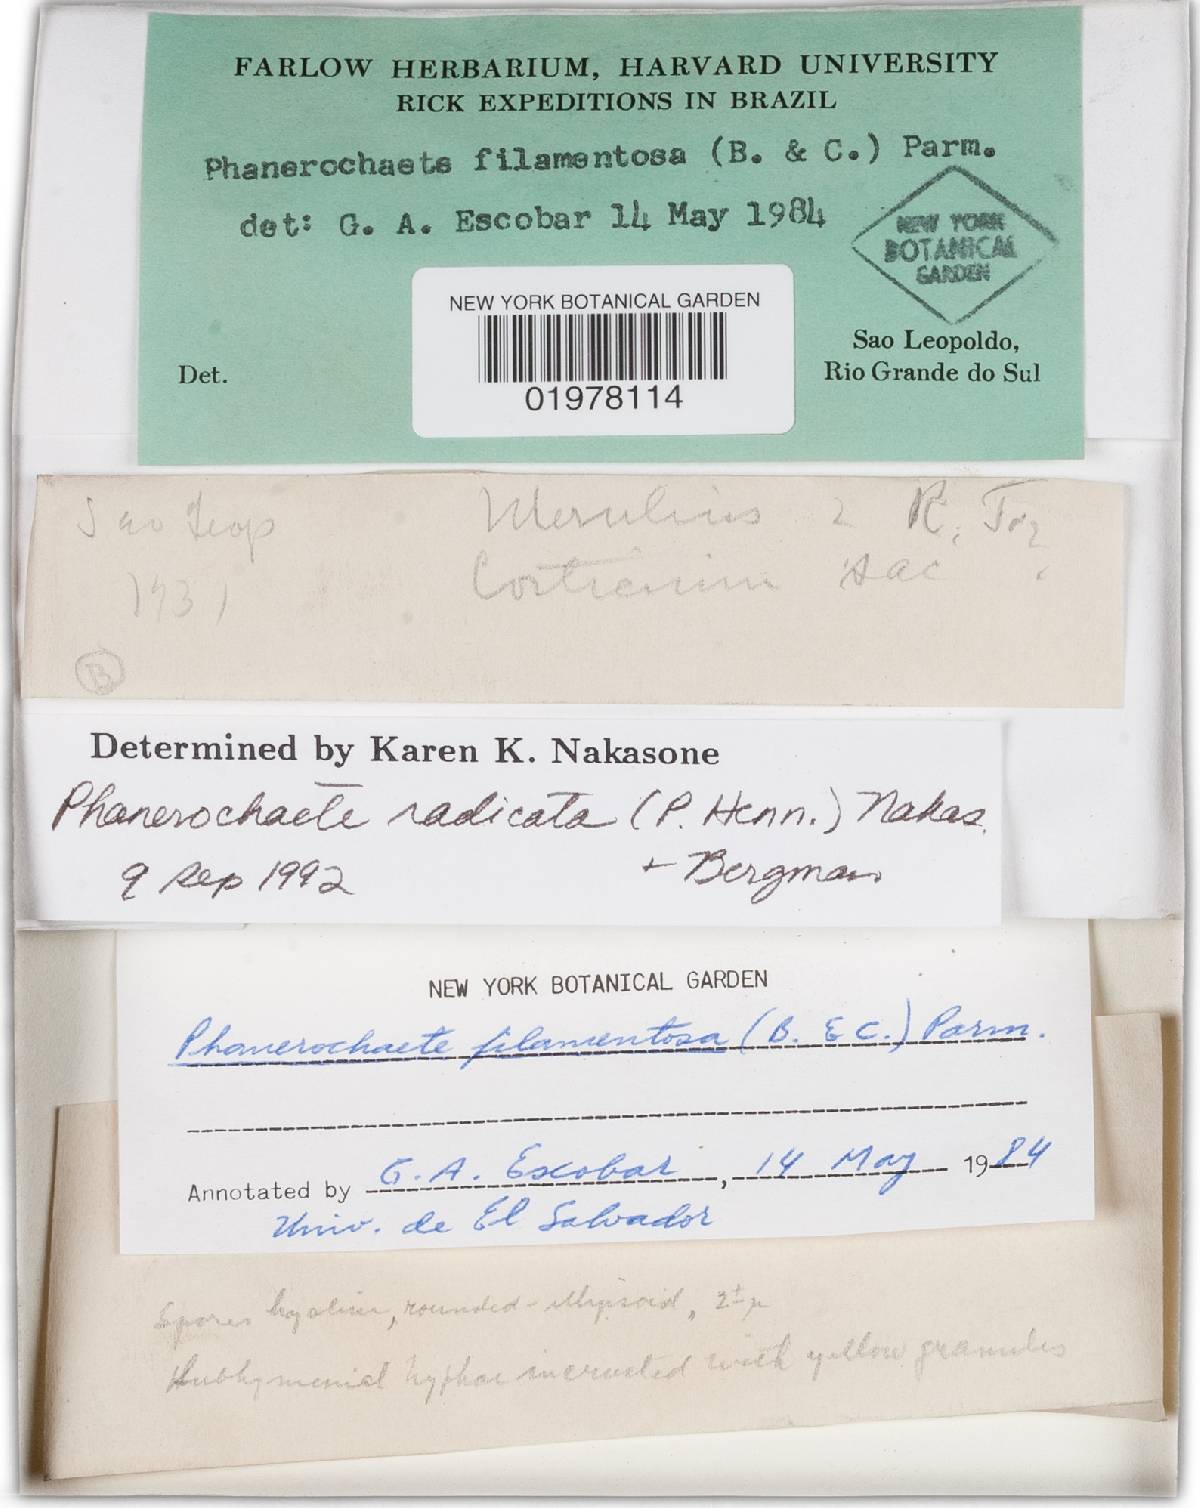 FARLOW HERBARIUM, HARVARD UNIVERSITY
RICK EXPEDITIONS IN BRAZIL
Phanerochaete filamentosa (B. & C.) Parm.
det: G. A. Escobar 14 May 1984
NEW YORK
BOTANICAL
GARDEN
NEW YORK BOTANICAL GARDEN
01978114
Det.
Sao Leopoldo,
Rio Grande do Sul
Sao Leop Merulius 2 R.
1931 Corticium
B
Determined by Karen K. Nakasone
Phanerochaete radicata (P. Henn.) Nakas.
9 Sep 1992 + Bergman
NEW YORK BOTANICAL GARDEN
Phanerochaete filamentosa (B. & C.) Parm.
Annotated by G. A. Escobar, 14 May 1984
Univ. de El Salvador
Spores hyaline, rounded-ellipsoid, 2± µ
Subhymenial hyphae incrusted with yellow granules